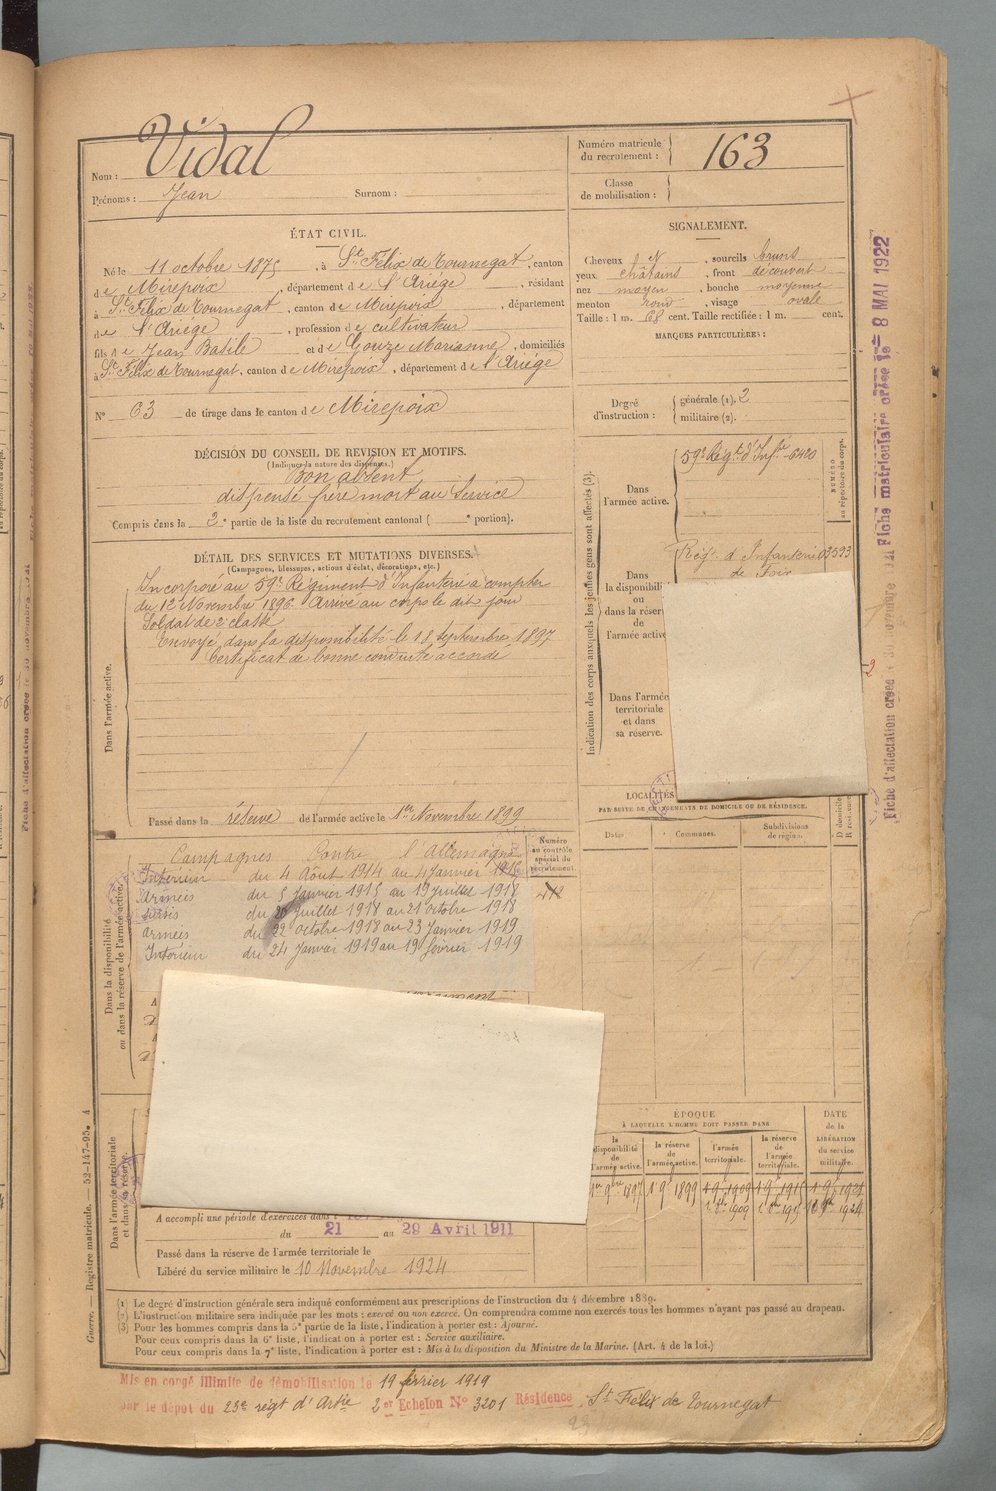 Nom : Vidal
Prénoms : Jean Surnom :
Numéro matricule du recrutement : 163
Classe de mobilisation :
ÉTAT CIVIL.
Né le 11 octobre 1875, à St Félix de Tournegat, canton
de Mirepoix, département de l'Ariège, résidant
à St Félix de Tournegat, canton de Mirepoix, département
de l'Ariège, profession de cultivateur
fils de Jean Basile et de Gouze Marianne, domiciliés
à St Félix de Tournegat, canton de Mirepoix, département de l'Ariège
N° 63 de tirage dans le canton de Mirepoix
SIGNALEMENT.
Cheveux N, sourcils bruns
yeux châtains, front découvert
nez moyen, bouche moyenne
menton rond, visage ovale
Taille : 1 m. 68 cent. Taille rectifiée : 1 m. cent.
MARQUES PARTICULIÈRES :
Degré d'instruction : générale (1). 2
militaire (2).
DÉCISION DU CONSEIL DE REVISION ET MOTIFS.
(Indiquer la nature des dispenses.)
Bon absent
dispensé frère mort au service
Compris dans la 2e partie de la liste du recrutement cantonal ( e portion).
DÉTAIL DES SERVICES ET MUTATIONS DIVERSES.
(Campagnes, blessures, actions d'éclat, décorations, etc.)
Dans l'armée active.
Incorporé au 59e Régiment d'Infanterie à compter
du 12 Novembre 1896. Arrivé au corps le dit jour
Soldat de 2e classe
Envoyé dans la disponibilité le 18 septembre 1897
Certificat de bonne conduite accordé
Passé dans la réserve de l'armée active le 1er Novembre 1899
Indication des corps auxquels les jeunes gens sont affectés (3).
NUMÉRO au répertoire du corps.
Dans l'armée active.
59e Régt d'Infie 6420
Dans la disponibili
ou
dans la réser
de
l'armée activ
Régt d'Infanterie 03593
de Foix
Dans l'armée
territoriale
et dans
sa réserve.
LOCALITÉS
PAR SUITE DE CHANGEMENTS DE DOMICILE OU DE RÉSIDENCE.
Dates. Communes. Subdivisions de région. D domicile R résidence
Dans la disponibilité
ou dans la réserve de l'armée active.
Numéro au contrôle spécial du recrutement.
Campagnes Contre l'allemagne
Intérieur du 4 Août 1914 au 4 Janvier 1915
Armées du 5 Janvier 1915 au 19 Juillet 1918
Sursis du 20 Juillet 1918 au 21 octobre 1918
armées du 22 octobre 1918 au 23 Janvier 1919
Intérieur du 24 Janvier 1919 au 19 février 1919
Dans l'armée territoriale
et dans sa réserve.
A accompli une période d'exercices dans
du 21 au 29 Avril 1911
Passé dans la réserve de l'armée territoriale le
Libéré du service militaire le 10 Novembre 1924
ÉPOQUE
À LAQUELLE L'HOMME DOIT PASSER DANS
la disponibilité de l'armée active.
la réserve de l'armée active.
l'armée territoriale.
la réserve de l'armée territoriale.
DATE de la LIBÉRATION du service militaire.
1er 9bre 1897 1 9 1899 1 9 1909 1 9 1915 1 9 1921
1909 1915 10 9bre 1924
(1) Le degré d'instruction générale sera indiqué conformément aux prescriptions de l'instruction du 4 décembre 1889.
(2) L'instruction militaire sera indiquée par les mots : exercé ou non exercé. On comprendra comme non exercés tous les hommes n'ayant pas passé au drapeau.
(3) Pour les hommes compris dans la 5e partie de la liste, l'indication à porter est : Ajourné.
Pour ceux compris dans la 6e liste, l'indication à porter est : Service auxiliaire.
Pour ceux compris dans la 7e liste, l'indication à porter est : Mis à la disposition du Ministre de la Marine. (Art. 4 de la loi.)
Mis en congé illimité de démobilisation le 19 février 1919
par le dépôt du 23e régt d'Artie 2er Echelon N° 3201 Résidence St Félix de Tournegat
Guerre. — Registre matricule. — 52-147-95. 4
Fiche matriculaire créée le 8 MAI 1922
Fiche d'affectation créée le 30 novembre